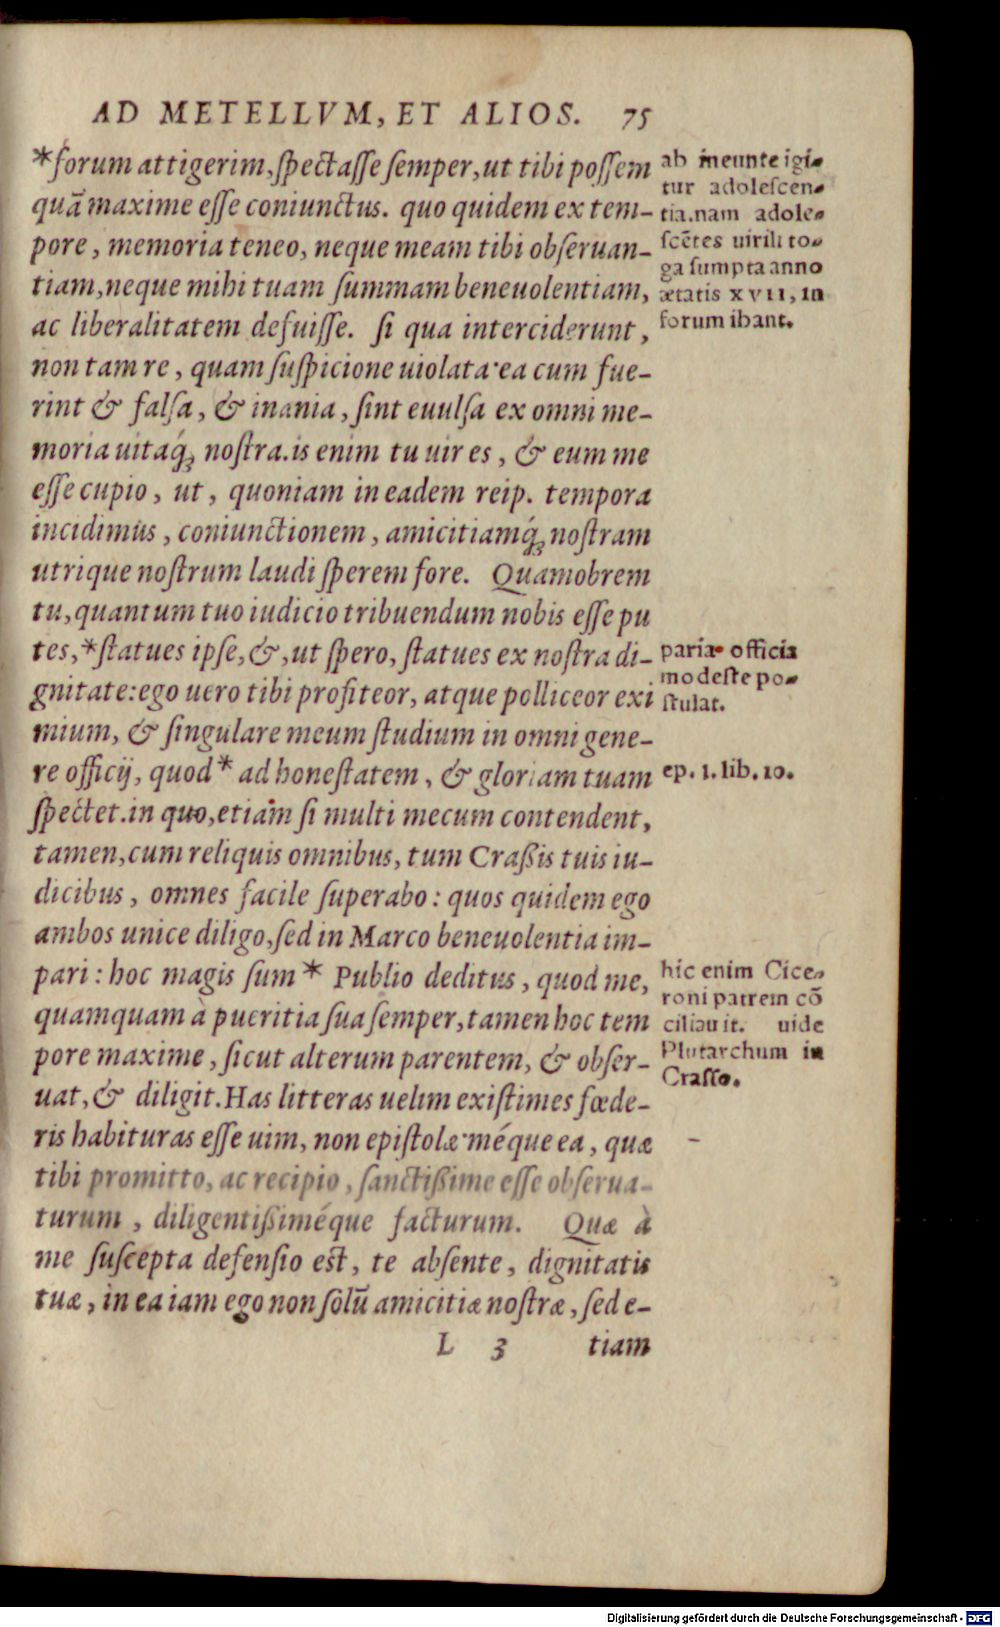 AD METELLVM, ET ALIOS. 75
*forum attigerim, spectasse semper, ut tibi possem
quā maxime esse coniunctus. quo quidem ex tem-
pore, memoria teneo, neque meam tibi obseruan-
tiam, neque mihi tuam summam beneuolentiam,
ac liberalitatem defuisse. si qua interciderunt,
non tam re, quam suspicione uiolata·ea cum fue-
rint & falsa, & inania, sint euulsa ex omni me-
moria uitaq́; nostra. is enim tu uir es, & eum me
esse cupio, ut, quoniam in eadem reip. tempora
incidimus, coniunctionem, amicitiamq́; nostram
utrique nostrum laudi sperem fore. Quamobrem
tu, quantum tuo iudicio tribuendum nobis esse pu
tes,*statues ipse, &, ut spero, statues ex nostra di-
gnitate: ego uero tibi profiteor, atque polliceor exi
mium, & singulare meum studium in omni gene-
re officij, quod* ad honestatem, & gloriam tuam
spectet. in quo, etiam si multi mecum contendent,
tamen, cum reliquis omnibus, tum Craßis tuis iu-
dicibus, omnes facile superabo: quos quidem ego
ambos unice diligo, sed in Marco beneuolentia im-
pari: hoc magis sum* Publio deditus, quod me,
quamquam à pueritia sua semper, tamen hoc tem
pore maxime, sicut alterum parentem, & obser-
uat, & diligit. Has litteras uelim existimes fœde-
ris habituras esse uim, non epistolæ·méque ea, quæ
tibi promitto, ac recipio, sanctißime esse obserua-
turum, diligentißiméque facturum. Quæ à
me suscepta defensio est, te absente, dignitatis
tuæ, in ea iam ego non solū amicitiæ nostræ, sed e-
L 3 tiam
ab ineunte igi-
tur adolescen-
tia. nam adole-
scētes uirili to-
ga sumpta anno
ætatis XVII, in
forum ibant.
paria officia
modeste po-
stulat.
ep. 1. lib. 10.
hic enim Cice-
roni patrem cō
ciliauit. uide
Plutarchum in
Crasso.
Digitalisierung gefördert durch die Deutsche Forschungsgemeinschaft - DFG